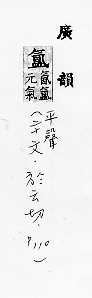 廣韻
氳
氤氳
元氣
平聲
(二十文．於云切．P110)